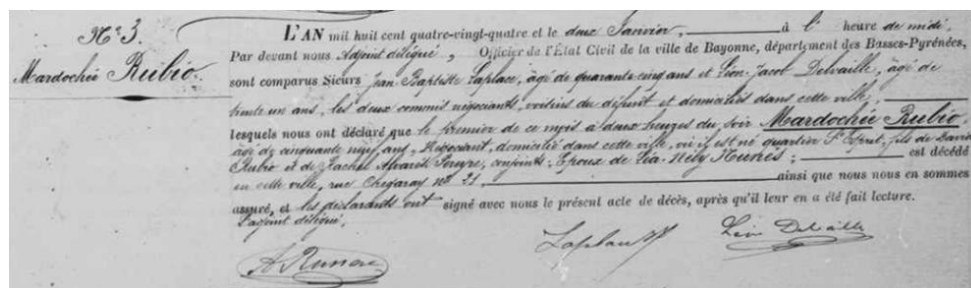 N.º 3.
Mardochée Rubio.
L'AN mil huit cent quatre-vingt-quatre et le deux Janvier, à l' heure de midi
Par devant nous Adjoint délégué, Officier de l'État Civil de la ville de Bayonne, département des Basses-Pyrénées,
sont comparus Sieurs Jean Baptiste Laplace, âgé de quarante cinq ans et Léon Jacob Delvaille, âgé de
trente un ans, les deux commis négociants, voisins du défunt et domiciliés dans cette ville,
lesquels nous ont déclaré que le premier de ce mois à deux heures du soir Mardochée Rubio,
âgé de cinquante neuf ans, Négociant, domicilié dans cette ville, où il est né quartier St Esprit, fils de David
Rubio et de Rachel Alvarès conjoints, Epoux de Léa Nelly Nounès; est décédé
en cette ville, rue Chegaray nº 21, ainsi que nous nous en sommes
assuré, et les déclarants ont signé avec nous le présent acte de décès, après qu'il leur en a été fait lecture.
L'adjoint délégué,
Léon Delvaille